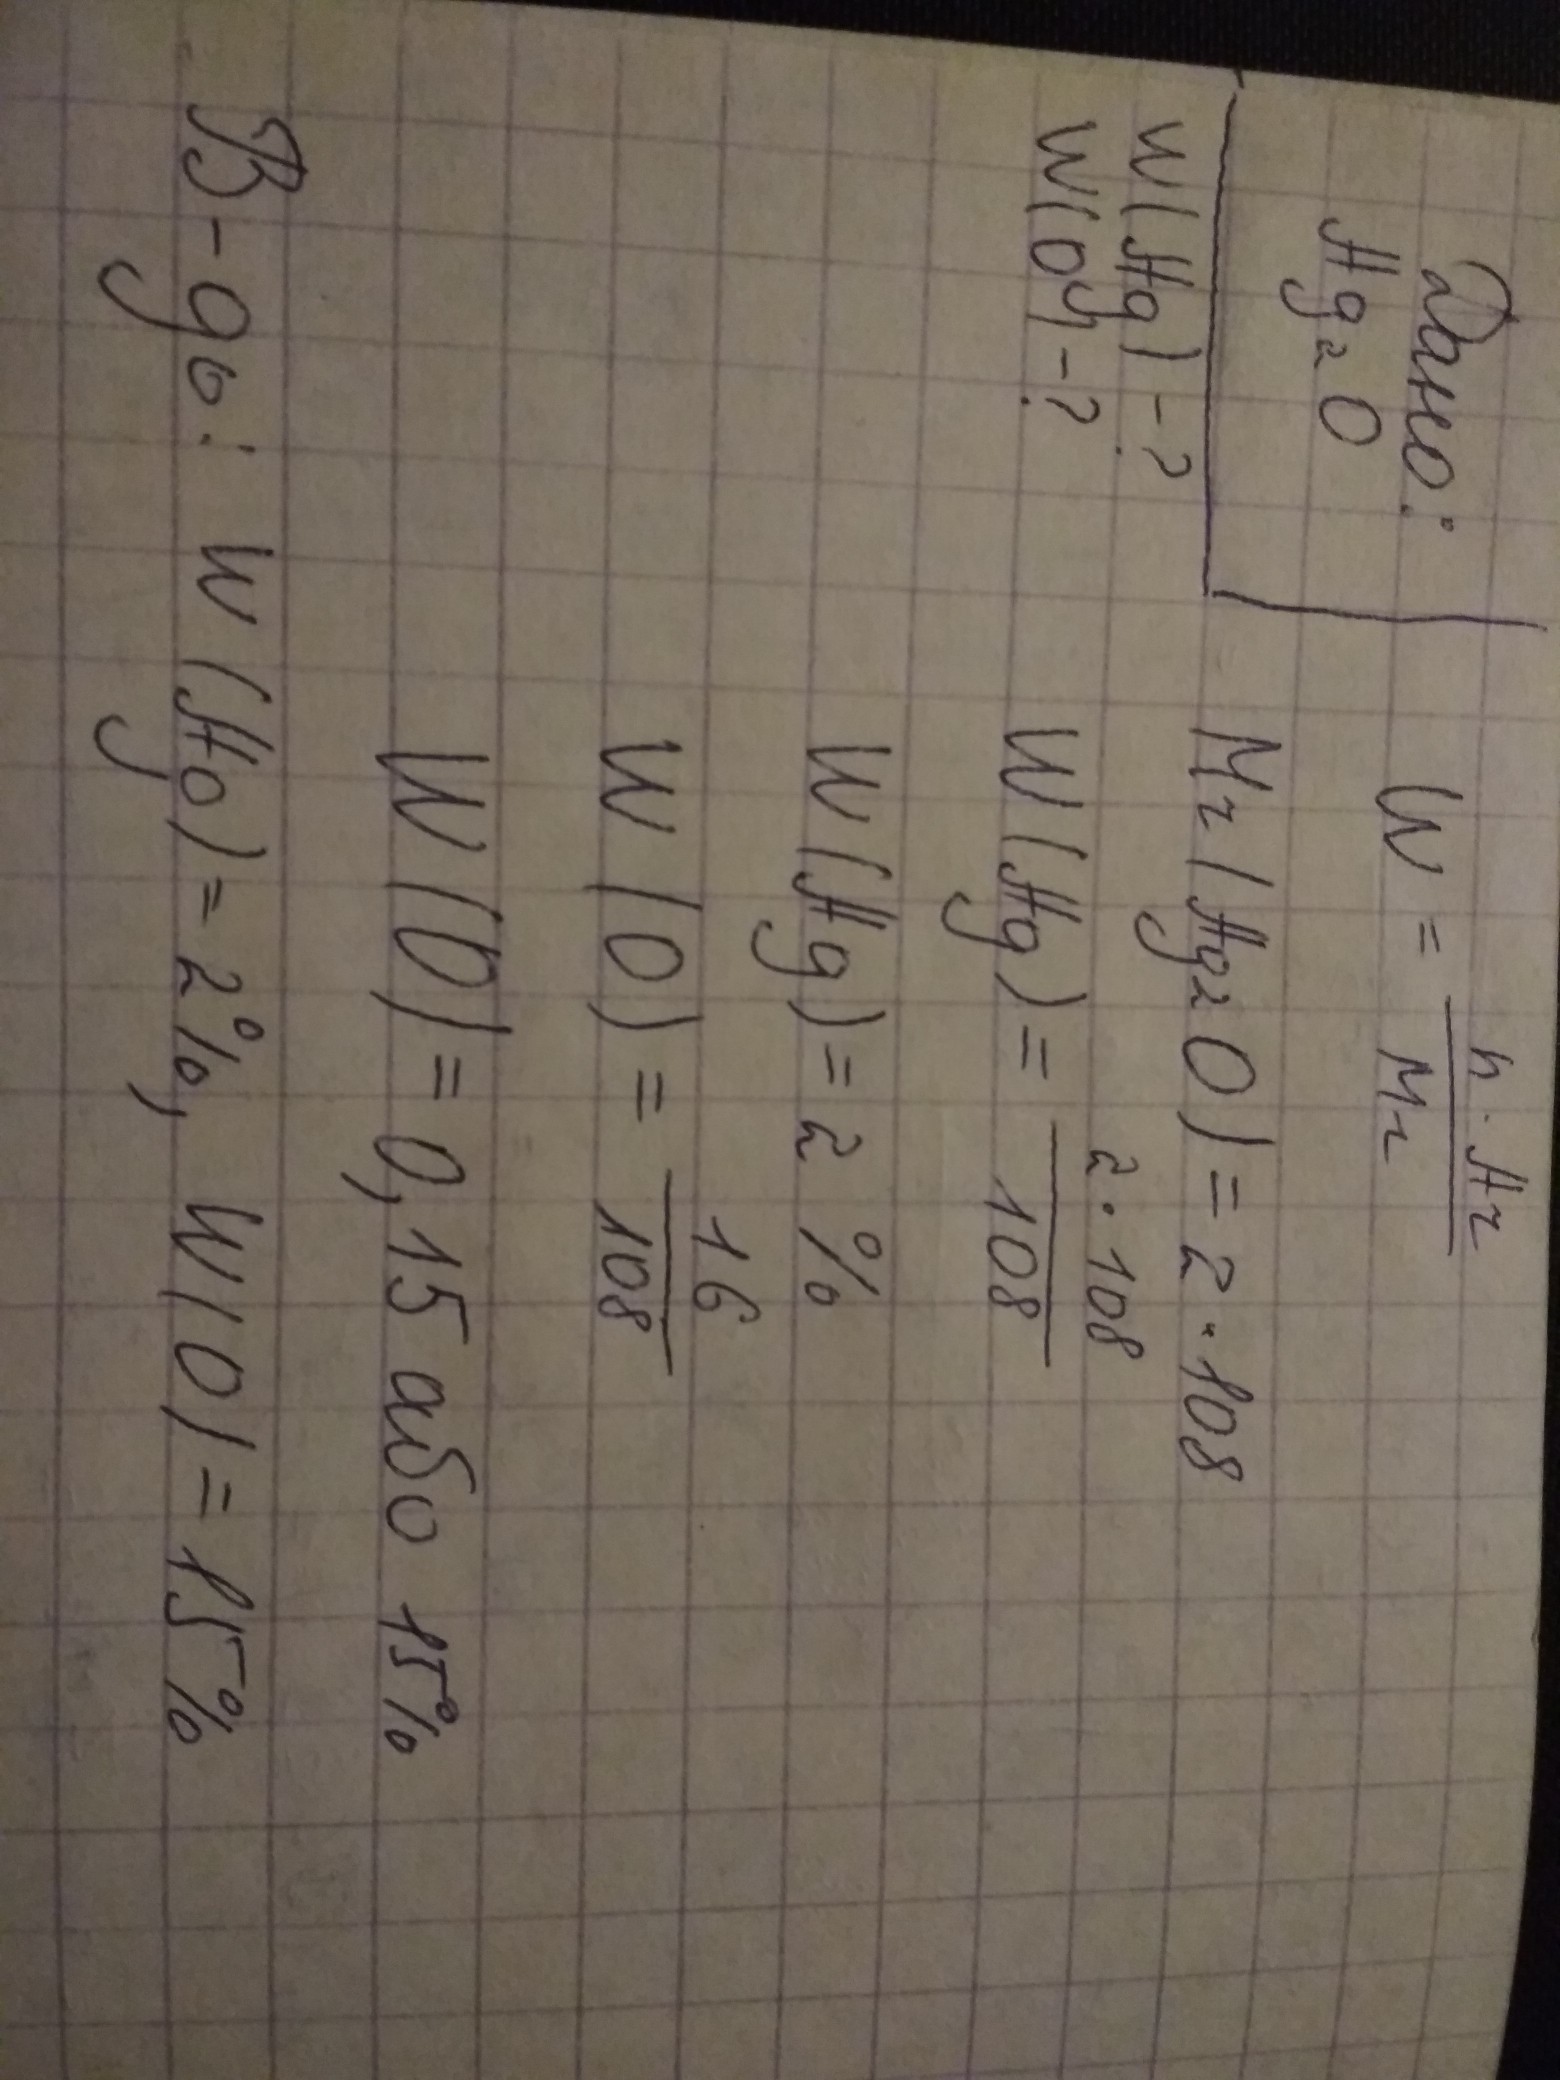 Дано:
Ag₂O
W(Ag)-?
W(O)-?
W = n·Ar / Mr
Mr(Ag₂O) = 2·108
W(Ag) = 2·108 / 108
W(Ag) = 2 %
W(O) = 16 / 108
W(O) = 0,15 або 15%
В-дь: W(Ag) = 2%, W(O) = 15%